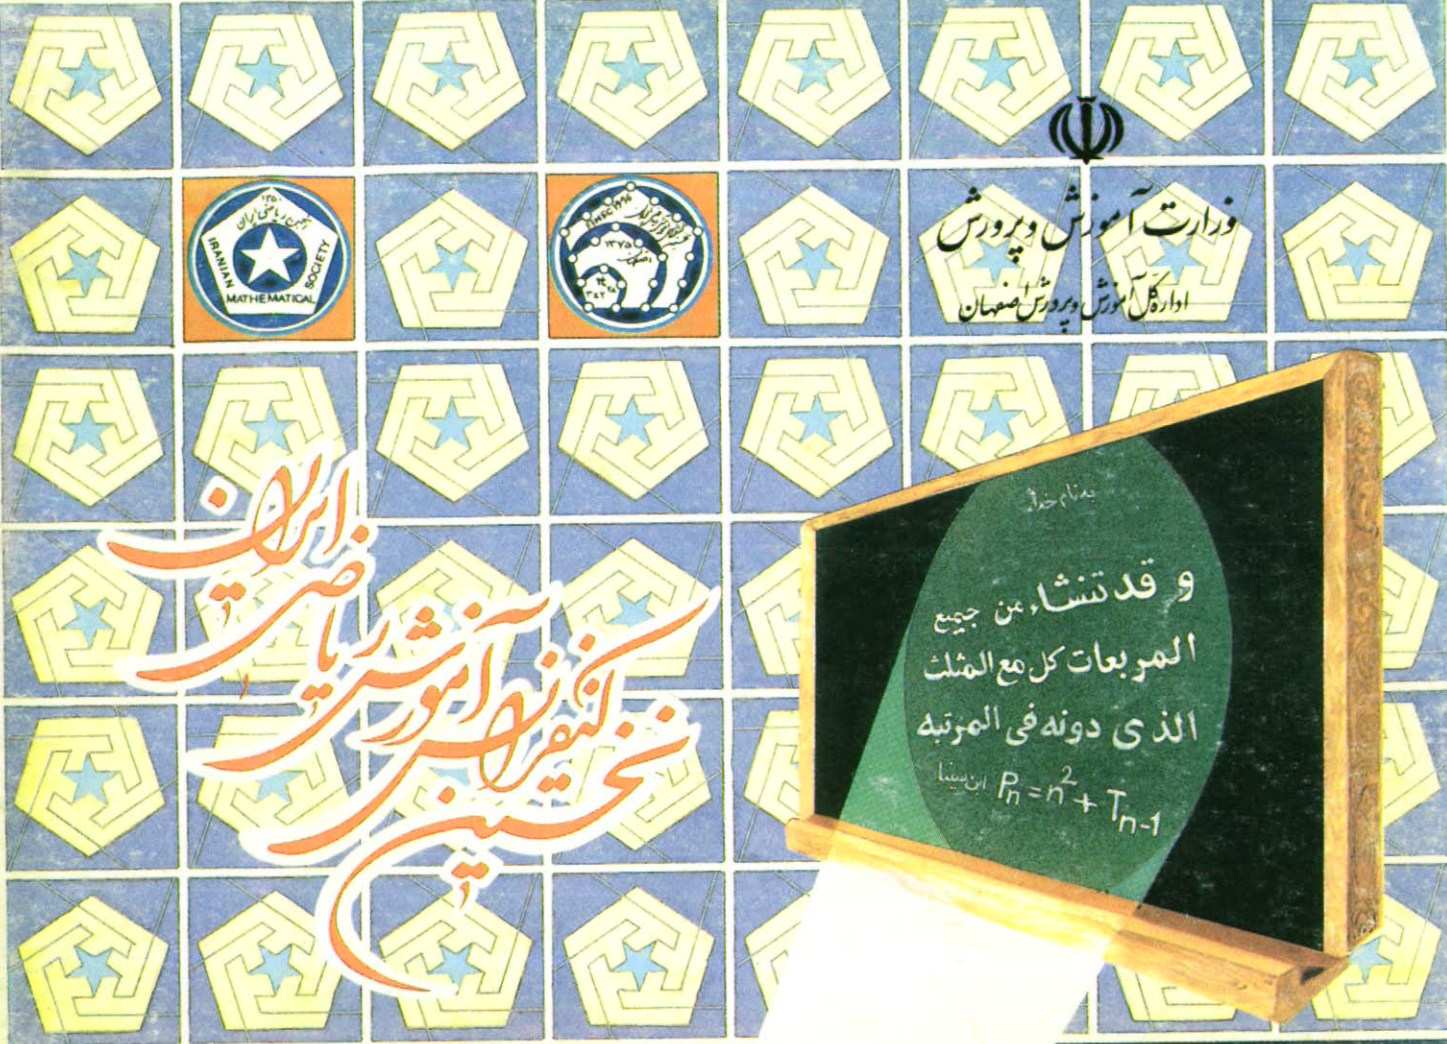 وزارت آموزش و پرورش
اداره کل آموزش و پرورش اصفهان
۱۳۵۰
انجمن ریاضی ایران
IRANIAN MATHEMATICAL SOCIETY
۱۳۷۵
اصفهان
نخستین
کنفرانس
آموزش
ریاضی
ایران
به نام خدا
و قد تنشاء من جمیع
المربعات کل مع المثلث
الذی دونه فی المرتبه
ابن سینا Pn = n² + Tn-1